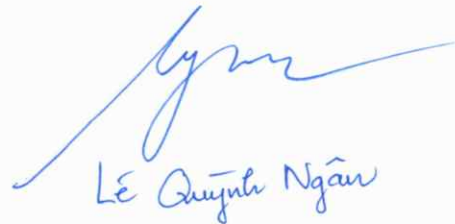 Lê Quỳnh Ngân